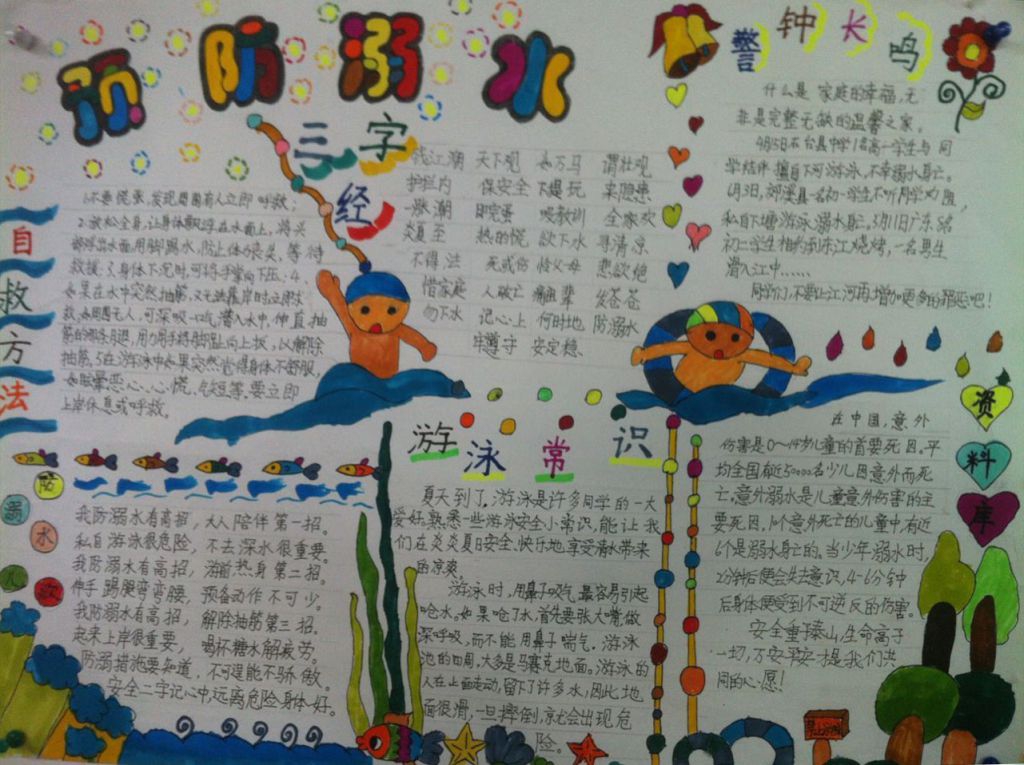 预防溺水
警钟长鸣
什么是家庭的幸福,无
非是完整无缺的温馨之家。
学结伴擅自下河游泳,不幸溺水身亡。
私自下塘游泳溺水身亡。5月1日广东5名
初二学生相约到东江烧烤,一名男生
潜入江中……
同学们,不要让江河再增加更多的罪恶吧!
三字经
钱江潮 天下观 如万马 谓壮观
护栏内 保安全 下堤玩 来隐患
一涨潮 即完蛋 吸教训 全家欢
炎夏至 热的慌 欲下水 寻清凉
不得法 死或伤 怜父母 悲欲绝
惜家庭 人破亡 发苍苍
勿下水 记心上 何时地 防溺水
牢遵守 安定稳
自救方法
1.不要慌张,发现周围有人立即呼救。
2.放松全身,让身体飘浮在水面上,将头
部浮出水面,用脚踢水,防止体力丧失,等待
救援。3.身体下沉时,可将手掌向下压。4.
如果在水中突然抽筋,又无法靠岸时,立即求
救。如周围无人,可深吸一口气潜入水中,伸直抽
筋的那条腿,用力用手将脚趾向上扳,以解除
抽筋。5.在游泳中如果突然觉得身体不舒服,
如眩晕、恶心、心慌、气短等,要立即
上岸休息或呼救。
游泳常识
夏天到了,游泳是许多同学的一大
爱好,熟悉一些游泳安全小常识,能让我
们在炎炎夏日安全、快乐地享受清水带来
的凉爽。
游泳时,用鼻子吸气最容易引起
呛水。如果呛了水,首先要张大嘴做
深呼吸,而不能用鼻子喘气。游泳
池的四周,大多是马赛克地面。游泳的
人在上面走动,留下了许多水,因此地
面很滑,一旦摔倒,就会出现危
险。
防溺水儿歌
我防溺水有高招,大人陪伴第一招。
私自游泳很危险,不去深水很重要。
我防溺水有高招,游前热身第二招。
伸手踢腿弯弯腰,预备动作不可少。
我防溺水有高招,解除抽筋第三招。
起来上岸很重要,喝杯糖水解疲劳。
防溺措施要知道,不可逞能不骄傲。
安全二字记心中,远离危险身体好。
资料库
在中国,意外
伤害是0~14岁儿童的首要死因。平
均全国有近50000名少儿因意外而死
亡。意外溺水是儿童意外伤害的主
要死因,10个意外死亡的儿童中,有近
6个是溺水身亡的。当少年溺水时,
2分钟后便会失去意识,4-6分钟
后身体便受到不可逆反的伤害。
安全重于泰山,生命高于
一切,万安平安才是我们共
同的心愿!